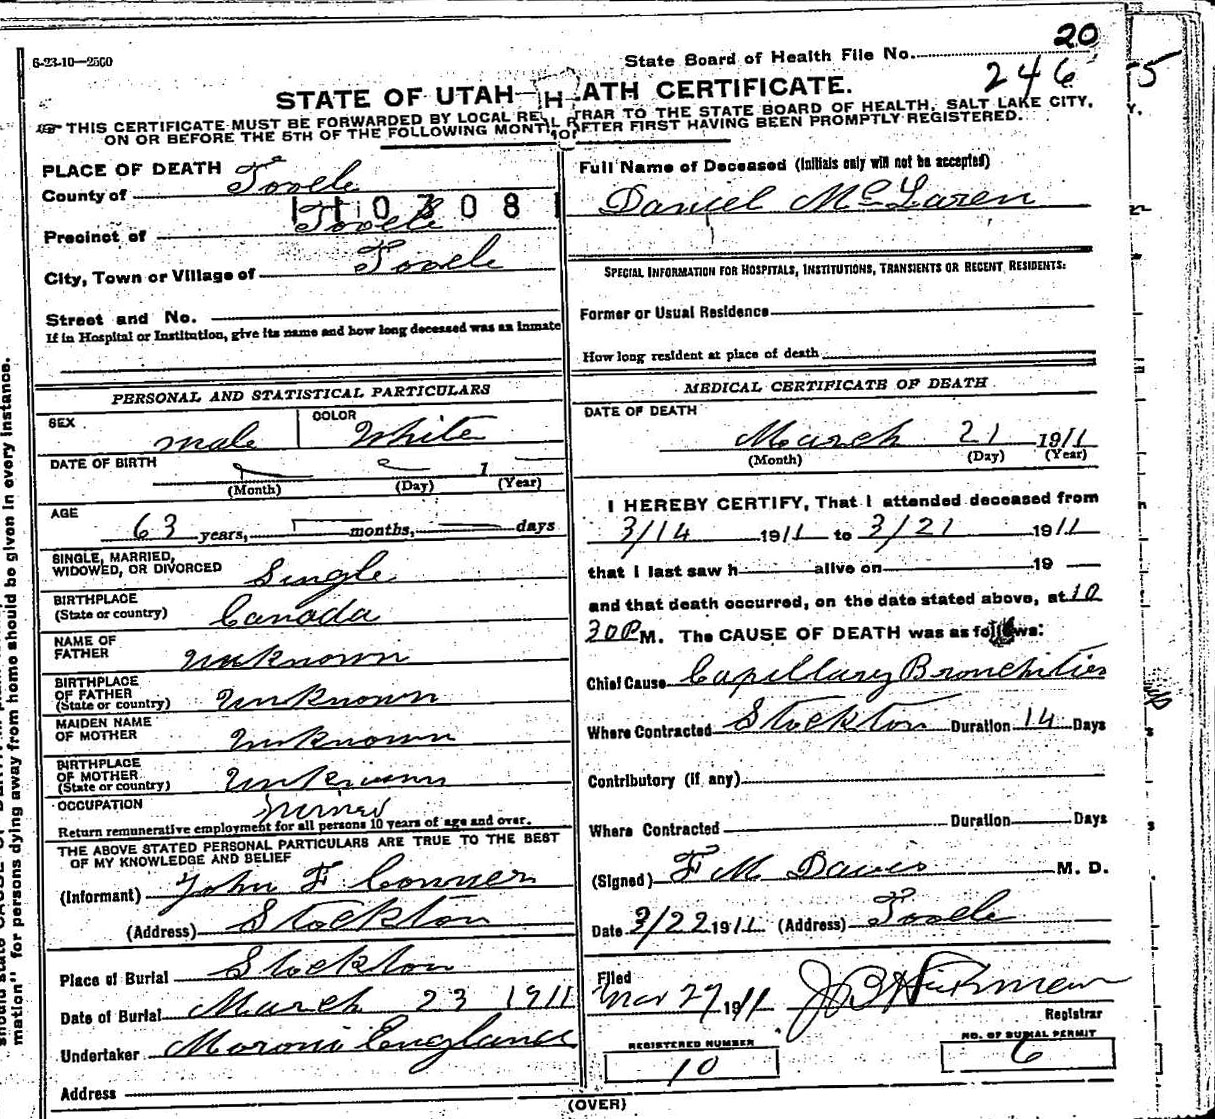 6-23-10—2500
State Board of Health File No. 20
246
5
STATE OF UTAH— ATH CERTIFICATE.
THIS CERTIFICATE MUST BE FORWARDED BY LOCAL TRAR TO THE STATE BOARD OF HEALTH, SALT LAKE CITY,
ON OR BEFORE THE 5TH OF THE FOLLOWING MONTH AFTER FIRST HAVING BEEN PROMPTLY REGISTERED.
PLACE OF DEATH
County of Tooele
Precinct of Tooele
City, Town or Village of Tooele
Street and No.
If in Hospital or Institution, give its name and how long deceased was an inmate
PERSONAL AND STATISTICAL PARTICULARS
SEX male COLOR White
DATE OF BIRTH 1
(Month) (Day) (Year)
AGE
63 years, months, days
SINGLE, MARRIED,
WIDOWED, OR DIVORCED Single
BIRTHPLACE
(State or country) Canada
NAME OF
FATHER Unknown
BIRTHPLACE
OF FATHER
(State or country) Unknown
MAIDEN NAME
OF MOTHER Unknown
BIRTHPLACE
OF MOTHER
(State or country) Unknown
OCCUPATION
Return remunerative employment for all persons 10 years of age and over.
THE ABOVE STATED PERSONAL PARTICULARS ARE TRUE TO THE BEST
OF MY KNOWLEDGE AND BELIEF
(Informant) John F Conner
(Address) Stockton
Place of Burial Stockton
Date of Burial March 23 1911
Undertaker Moroni England
Address
Full Name of Deceased (Initials only will not be accepted)
Daniel McLaren
SPECIAL INFORMATION FOR HOSPITALS, INSTITUTIONS, TRANSIENTS OR RECENT RESIDENTS:
Former or Usual Residence
How long resident at place of death
MEDICAL CERTIFICATE OF DEATH
DATE OF DEATH
March 21 1911
(Month) (Day) (Year)
I HEREBY CERTIFY, That I attended deceased from
3/14 1911 to 3/21 1911
that I last saw h alive on 19
and that death occurred, on the date stated above, at 10
30 P M. The CAUSE OF DEATH was as follows:
Chief Cause Capillary Bronchities
Where Contracted Stockton Duration 14 Days
Contributory (if any)
Where Contracted Duration Days
(Signed) F M Davis M. D.
Date 3/22 1911 (Address) Tooele
Filed
Mar 27 1911
Registrar
REGISTERED NUMBER
10
NO. OF BURIAL PERMIT
6
(OVER)
mation" for persons dying away from home should be given in every instance.